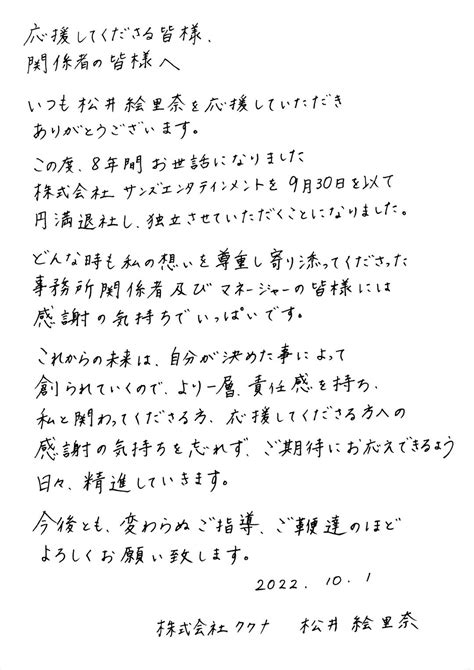 応援してくださる皆様、
関係者の皆様へ
いつも松井絵里奈を応援していただき
ありがとうございます。
この度、8年間お世話になりました
株式会社サンズエンタテインメントを9月30日を以て
円満退社し、独立させていただくことになりました。
どんな時も私の想いを尊重し寄り添ってくださった
事務所関係者及びマネージャーの皆様には
感謝の気持ちでいっぱいです。
これからの未来は、自分が決めた事によって
創られていくので、より一層、責任感を持ち、
私と関わってくださる方、応援してくださる方への
感謝の気持ちを忘れず、ご期待にお応えできるよう
日々、精進していきます。
今後とも、変わらぬご指導、ご鞭達のほど
よろしくお願い致します。
2022.10.1
株式会社クワナ 松井絵里奈